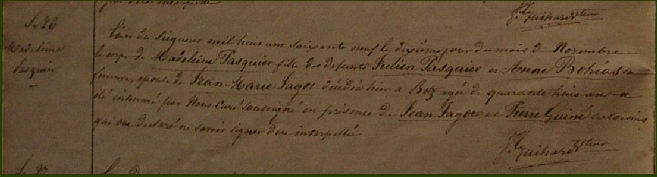 Jh. Guihard rteur
S. 26
Madeleine
Pasquier
L'an du Seigneur mil huit cent soixante neuf le dixième jour du mois de Novembre
le corps de Madeleine Pasquier fille des defunts Julien Pasquier et Anne Bohéas sa
femme, épouse de Jean-Marie Jagot décédée hier à agée de quarante huit ans a
été inhumé par Nous Curé soussigné en présence de Jean Jagot et Pierre Guiné
qui ont declaré ne savoir signer de ce interpellés.
Jh. Guihard rteur
S. 27